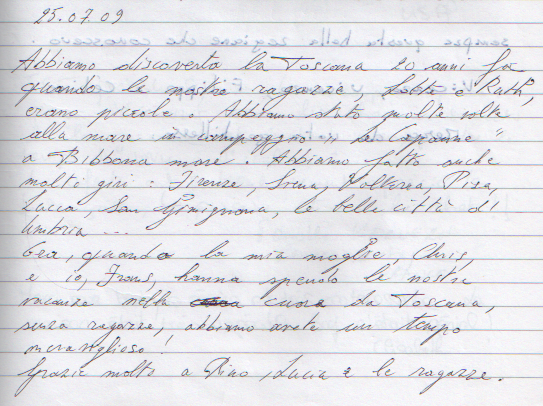 25.07.09
Abbiamo discoverta la Toscana 20 anni fa
quando le nostre ragazze, Lotte e Ruth,
erano piccole. Abbiamo stato molte volte
alla mare in campeggio "Le Capanne"
a Bibbona mare. Abbiamo fatto anche
molti giri: Firenze, Siena, Volterra, Pisa,
Lucca, San Gimignona, le belle città di
Umbria ...
Ora, quando la mia moglie, Chris,
e io, Frans, hanna spendo le nostre
vacanze nella cuore da Toscana,
senza ragazze, abbiamo avete un tempo
meraviglioso!
Grazie molto a Pino, Lucia e le ragazze.